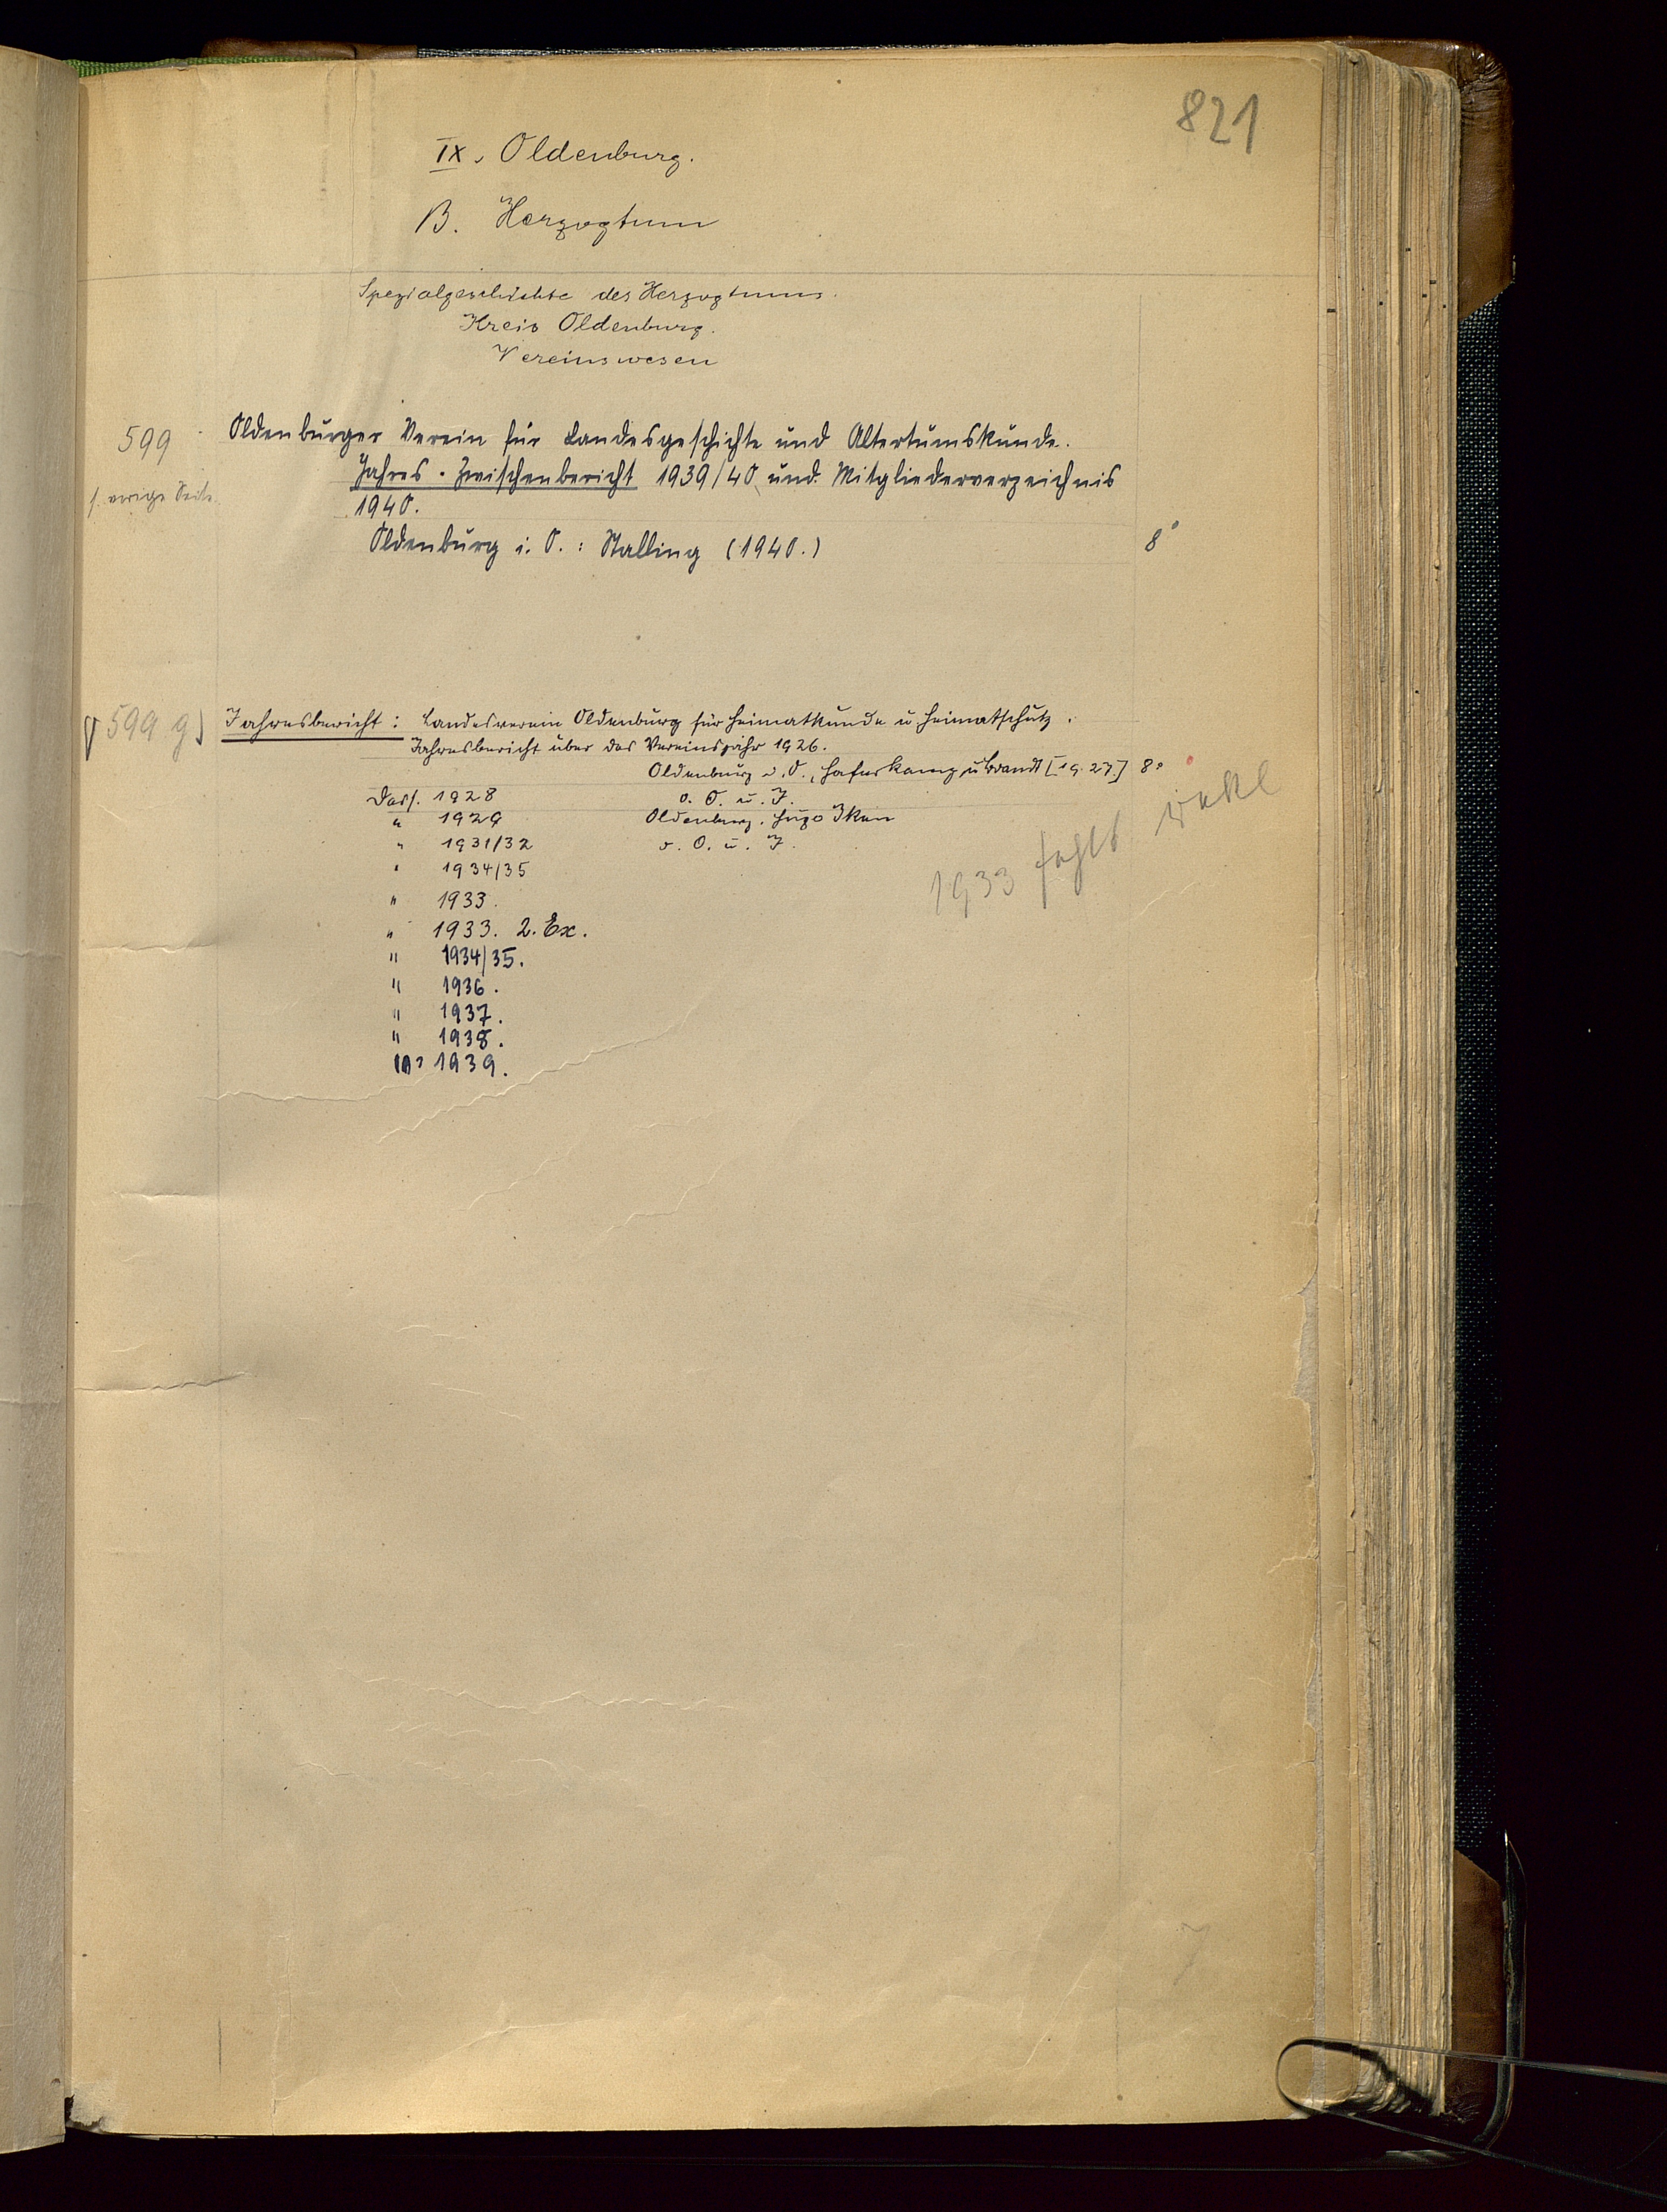 821
IX. Oldenburg.
B. Herzogtum
Spezialgeschichte des Herzogtums.
Kreis Oldenburg.
Vereinswesen
599 Oldenburger Verein für Landesgeschichte und Altertumskunde.
Jahres-Zwischenbericht 1939/40 und Mitgliederverzeichnis
s. vorige Seite.
1940.
Oldenburg i. O.: Stalling (1940.) 8°
599 g) Jahresbericht: Landesverein Oldenburg für Heimatkunde u Heimatschutz.
Jahresbericht über das Vereinsjahr 1926.
Oldenburg i. O., Haferkamp u Brandt [19.27.] 8°
Dass. 1928 o. O. u. J.
" 1929 Oldenburg. Hugo Iken
" 1931/32 o. O. u. J.
" 1934/35
1933 fehlt
" 1933.
" 1933. 2. Ex.
" 1934/35.
" 1936.
" 1937.
" 1938.
1939.